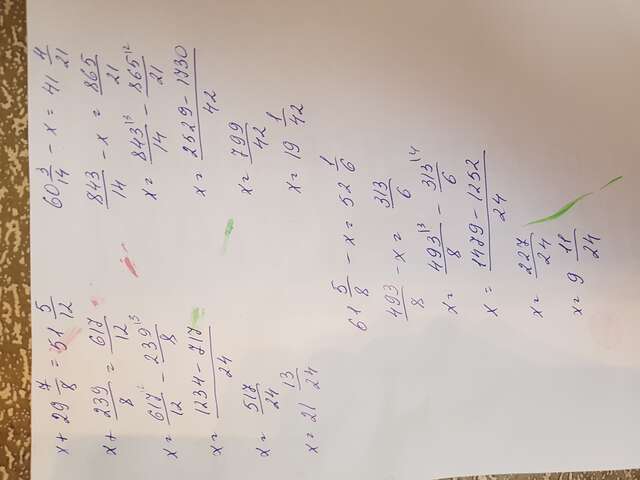 x + 29 7/8 = 51 5/12
x + 239/8 = 617/12
x = 617/12 ⁽² - 239/8 ⁽³
x = (1234 - 717)/24
x = 517/24
x = 21 13/24
60 3/14 - x = 41 4/21
843/14 - x = 865/21
x = 843/14 ⁽³ - 865/21 ⁽²
x = (2529 - 1730)/42
x = 799/42
x = 19 1/42
61 5/8 - x = 52 1/6
493/8 - x = 313/6
x = 493/8 ⁽³ - 313/6 ⁽⁴
x = (1479 - 1252)/24
x = 227/24
x = 9 11/24